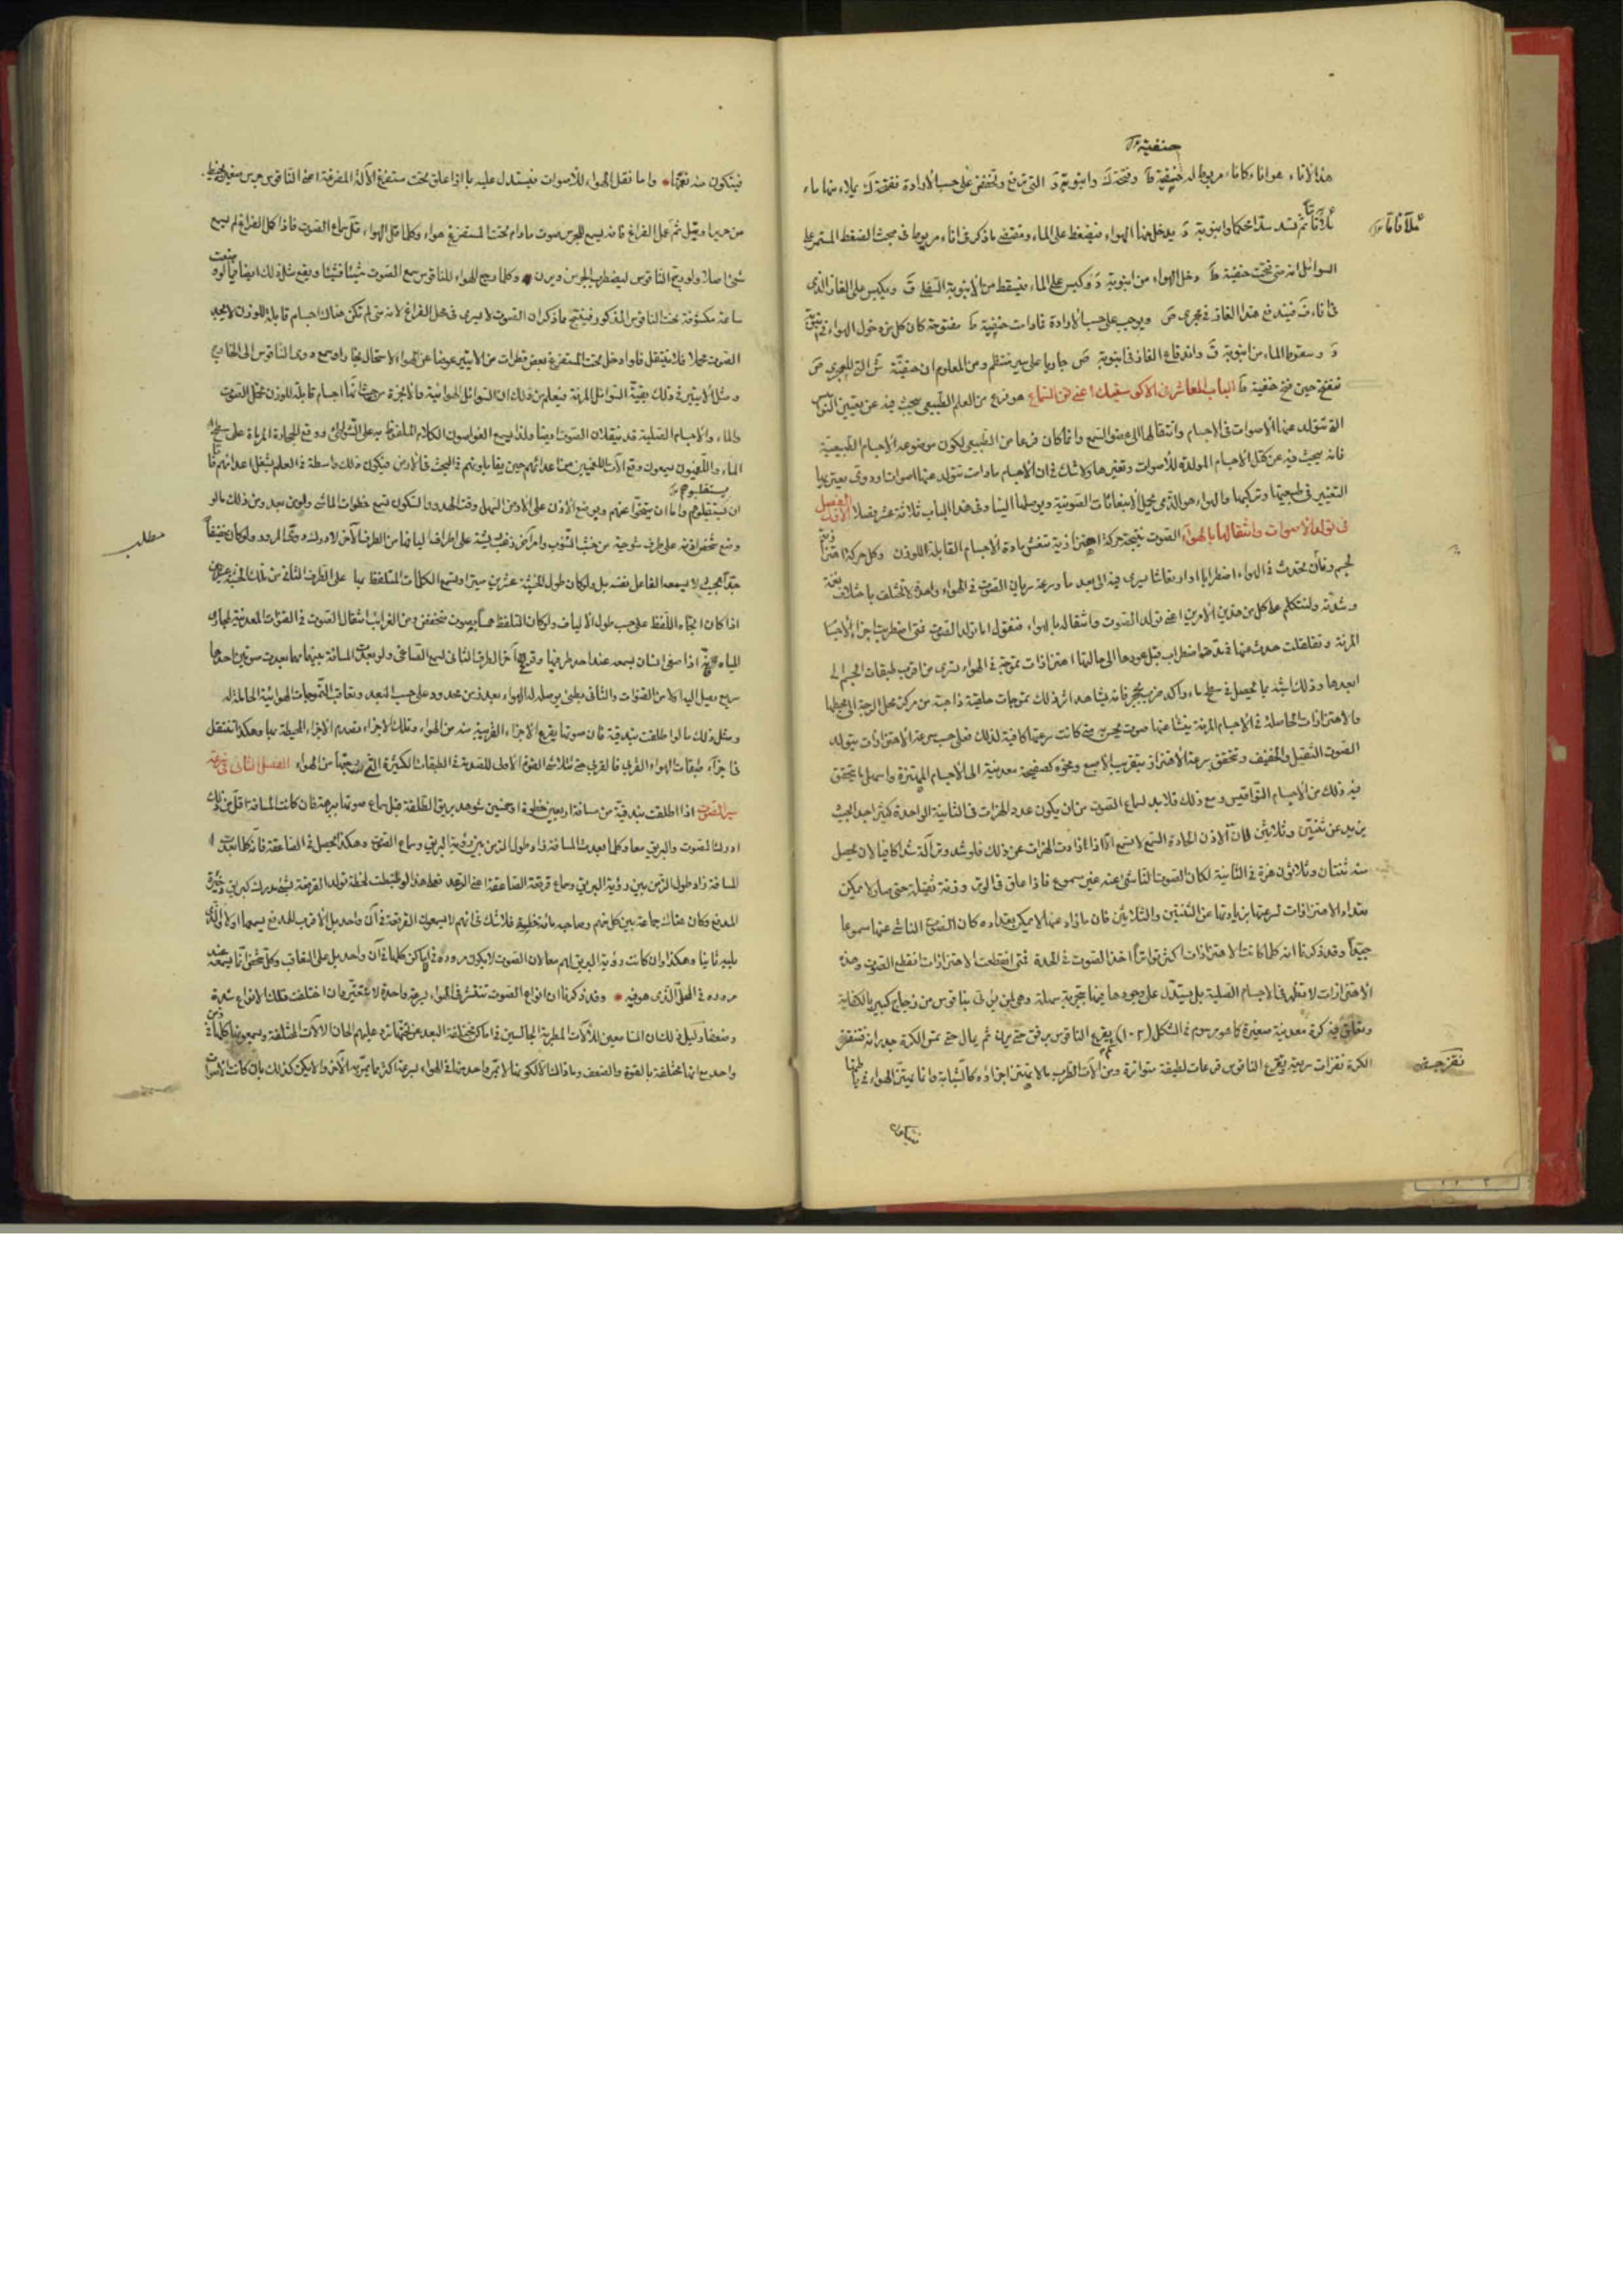 حنفية
هذا الاناء هو اناء كاناء مربوط له حنفية ط وفتحة ك وانبوبة د التى ترفع وتخفض على حسب الارادة ففتحة ك يملاء منها ماء
ثم تسد سدا محكما وانبوبة د يدخل منها الهواء فيضغط على الماء ومقتضى ما ذكر فى اناء مربوط فى مبحث الضغط المستمر على
السوائل انه متى فتحت حنفية ط دخل الهواء من انبوبة د وكبس على الماء فيسقط من الانبوبة السفلى ق ويكبس على الغاز الذى
فى اناء ف فيندفع هذا الغاز فى مجرى ص ويوجب على حسب الارادة مادامت حنفية ط مفتوحة كان كل من دخول الهواء
د وسقوط الماء من انبوبة ق واندفاع الغاز فى انبوبة ص جاريا على سير منتظم ومن المعلوم ان حنفية ش التى للمجرى ص
تفتح حين فتح حنفية ط الباب العاشر فى الاكوسقيك اعنى فن السماع هو فرع من العلم الطبيعى يبحث فيه عن تعيين النواميس
التى تتولد عنها الاصوات فى الاجسام وانتقالها الى عضو السمع وانما كان فرعا من الطبيعى لكون موضوعه الاجسام الطبيعية
فانه يبحث فيه عن كتل الاجسام المولدة للاصوات وتغيرها ولا شك فى ان الاجسام مادامت تتولد عنها اصوات ودوى يعتريها
التغيير فى طبيعتها وتركيبها والهواء هو الذى يحمل الانبعاثات الصوتية ويوصلها الينا وفى هذا الباب ثلاثة عشر فصلا الفصل الاول
فى تولد الاصوات وانتقالها بالهواء الصوت نتيجة حركة اهتزازية تغشى مادة الاجسام القابلة للوزن وكل حركة اهتزازية
لجسم رنان تحدث فى الهواء اضطرابا او ارتعاشا يسرى فيه الى بعد ما وسرعة سريان الصوت فى الهواء واحدة لا تختلف باختلاف نغمته
وشدته ولنتكلم على كل من هذين الامرين اعنى تولد الصوت وانتقاله بالهواء فنقول اما تولد الصوت فمتى اضطربت اجزاء الاجسام
المرنة وتقلقلت حدث عنها فى مدة اضطراب قبل عودها الى حالتها اهتزازات تموجية فى الهواء تسرى من اقرب طبقات الجسم الى
ابعدها وذلك اشبه بما يحصل فى سطح ماء راكد ضرب بحجر فانه يشاهد اثر ذلك تموجات حلقية ذاهبة من مركز محل الرجة الى محيطها
والاهتزازات الحاصلة فى الاجسام المرنة ينشأ عنها صوت يحس به متى كانت سرعتها كافية لذلك فعلى حسب سرعة الاهتزازات يتولد
الصوت الثقيل والخفيف وتتحقق سرعة الاهتزاز بتقريب الاصبع ونحوه كصفيحة معدنية الى الاجسام المهتزة واسهل ما يتحقق
فيه ذلك من الاجسام النواقيس ومع ذلك فلا بد لسماع الصوت من ان يكون عدد الهزات فى الثانية الواحدة كثيرا جدا بحيث
يزيد عن ثنتين وثلاثين لان الاذن الحادة السمع لا تسمع الا اذا زادت الهزات عن ذلك فلو شد وتر آلة شدا كافيا لان يحصل
منه ثنتان وثلاثون هزة فى الثانية لكان الصوت الناشئ عنه غير مسموع فاذا علق فى الوتر وزنة ثقيلة حتى صار لا يمكن
تعداد الاهتزازات لسرعتها بزيادتها عن الثنتين والثلاثين فان ما زاد عنها لا يمكن تعداده كان الصوت الناشئ عنها مسموعا
جيدا وقد ذكرنا انه كلما كانت الاهتزازات اكثر تواترا اخذ الصوت فى الحدة فمتى انقطعت الاهتزازات انقطع الصوت وهذه
الاهتزازات لا تظهر فى الاجسام الصلبة بل يستدل على وجودها فيها بتجربة سهلة وهى ان يؤتى بناقوس من زجاج كبير بالكفاية
ويعلق فيه كرة معدنية صغيرة كما هو مرسوم فى الشكل (١٠٢) ثم يقرع الناقوس برفق حتى يرن ثم يمال حتى تمس الكرة جدرانه فتنقز
الكرة نقزات سريعة وتقرع الناقوس قرعات لطيفة متواترة ومن الآت الطرب ما لا تهتز اجزاؤه كالشبابة وانما يهتز الهواء فى باطنها
نقز جستن
فيتكون
فيتكون منه نغمتها * واما نقل الهواء للاصوات فيستدل عليه بما اذا علق تحت مستفرغ الآلة المفرغة اعنى الناقوس جرس صغير بخيط
من حرير او تيل ثم عمل الفراغ فانه يسمع للجرس صوت ما دام تحت المستفرغ هواء وكلما قل الهواء قل سماع الصوت فاذا كمل الفراغ لم يسمع
شئ اصلا ولو ريج الناقوس ليضطرب الجرس ويرن * وكلما رجع الهواء للناقوس سمع الصوت شيئا فشيئا ويقع مثل ذلك ايضا فيما لو وضعت
ساعة مكشوفة تحت الناقوس المذكور فينتج مما ذكر ان الصوت لا يسرى فى محل الفراغ لانه متى لم تكن هناك اجسام قابلة للوزن لا يجد
الصوت محملا فلا ينتقل فلو ادخل تحت المستفرغ بعض قطرات من الايتير عوضا عن الهواء لاستحال بخارا وسمع دوى الناقوس الى الخارج
ومثل الايتير فى ذلك بقية السوائل المرنة فيعلم من ذلك ان السوائل الهوائية والابخرة من حيث انها اجسام قابلة للوزن تحمل الصوت
والماء والاجسام الصلبة قد ينقلان الصوت ايضا ولذا يسمع الغواصون الكلام الملفوظ به على الشواطئ ووقع الحجارة المرماة على سطح
الماء واللغمجيون يسمعون وقع الآت اللغمجيين من اعدائهم حين يقابلونهم فى البحث فى الارض فيكون ذلك واسطة فى العلم بشغل اعدائهم فاما
ان يستقبلوهم واما ان يتنحوا عنهم وبوضع الاذن على الارض فى الليل وقت الهدو والسكون تسمع خطوات الماشى ولو من بعد ومن ذلك ما لو
وضع شخص اذنه على طرف سوحية من خشب الشوب وامر آخر
مطلب
اذا كان اتجاه اللفظ على حسب طول الالياف ولو كان المتلفظ همسا بصوت منخفض ومن الغرائب انتقال الصوت فى القنوات المعدنية لمجارى
المياه اذا صغى انسان بسمعه عند احد طرفيها وقرع آخر الطرف الثانى لسمع الصاغى ولو بعدت المسافة بينهما مهما بعدت صوتين احدهما
سريع يصل اليه اولا من القنوات والثانى بطئ يوصله له الهواء بعد زمن محدود على حسب البعد وتعاقب التموجات الهوائية الحاملة له
ومثل ذلك ما لو اطلقت بندقية فان صوتها يقرع الاجزاء القريبة منه من الهواء وتلك الاجزاء تصدم الاجزاء المحيطة بها وهكذا تنتقل
فى اجزاء طبقات الهواء القربى فالقربى حتى تتلاشى القوة الاولى للصدمة فى الطبقات الكثيرة التى رجتها من الهواء الفصل الثانى فى سرعة
سير الصوت اذا اطلقت بندقية من مسافة اربعين خطوة او خمسين شوهد بريق الطلقة قبل سماع صوتها ببرهة فان كانت المسافة اقل من ذلك
ادرك الصوت والبريق معا وكلما بعدت المسافة زاد طول الزمن بين رؤية البريق وسماع الصوت وهكذا يحصل فى الصاعقة فانه كلما بعدت
المسافة زاد طول الزمن بين رؤية البريق وسماع قرقعة الصاعقة اعنى الرعد
المدفع وكان هناك جماعة بين كل منهم وصاحبه مائة خطوة فلا شك فى انهم لا يسمعون القرقعة فى آن واحد بل الاقرب للمدفع يسمعها اولا والذى
يليه ثانيا وهكذا وان كانت رؤية البريق لهم معا لان الصوت لا يكون مروره فى اماكن كلها فى آن واحد بل على التعاقب وكل شخص انما يسمعه عند
مروره فى المحل الذى هو فيه * وقد ذكرنا ان انواع الصوت تنتشر فى الهواء بسرعة واحدة لا تتغير وان اختلفت تلك الانواع شدة
وضعفا ودليل ذلك ان السامعين للآلات المطربة الجالسين فى اماكن مختلفة البعد عن تختها ترد عليهم الحان الآلات المختلفة ويسمعونها كلها فى زمن
واحد مع انها مختلفة بالقوة والضعف وما ذاك الا لكونها لا تمر واحدة منها فى الهواء بسرعة اكثر مما تمر به الاخرى والا يكن كذلك بان كانت الاصوات